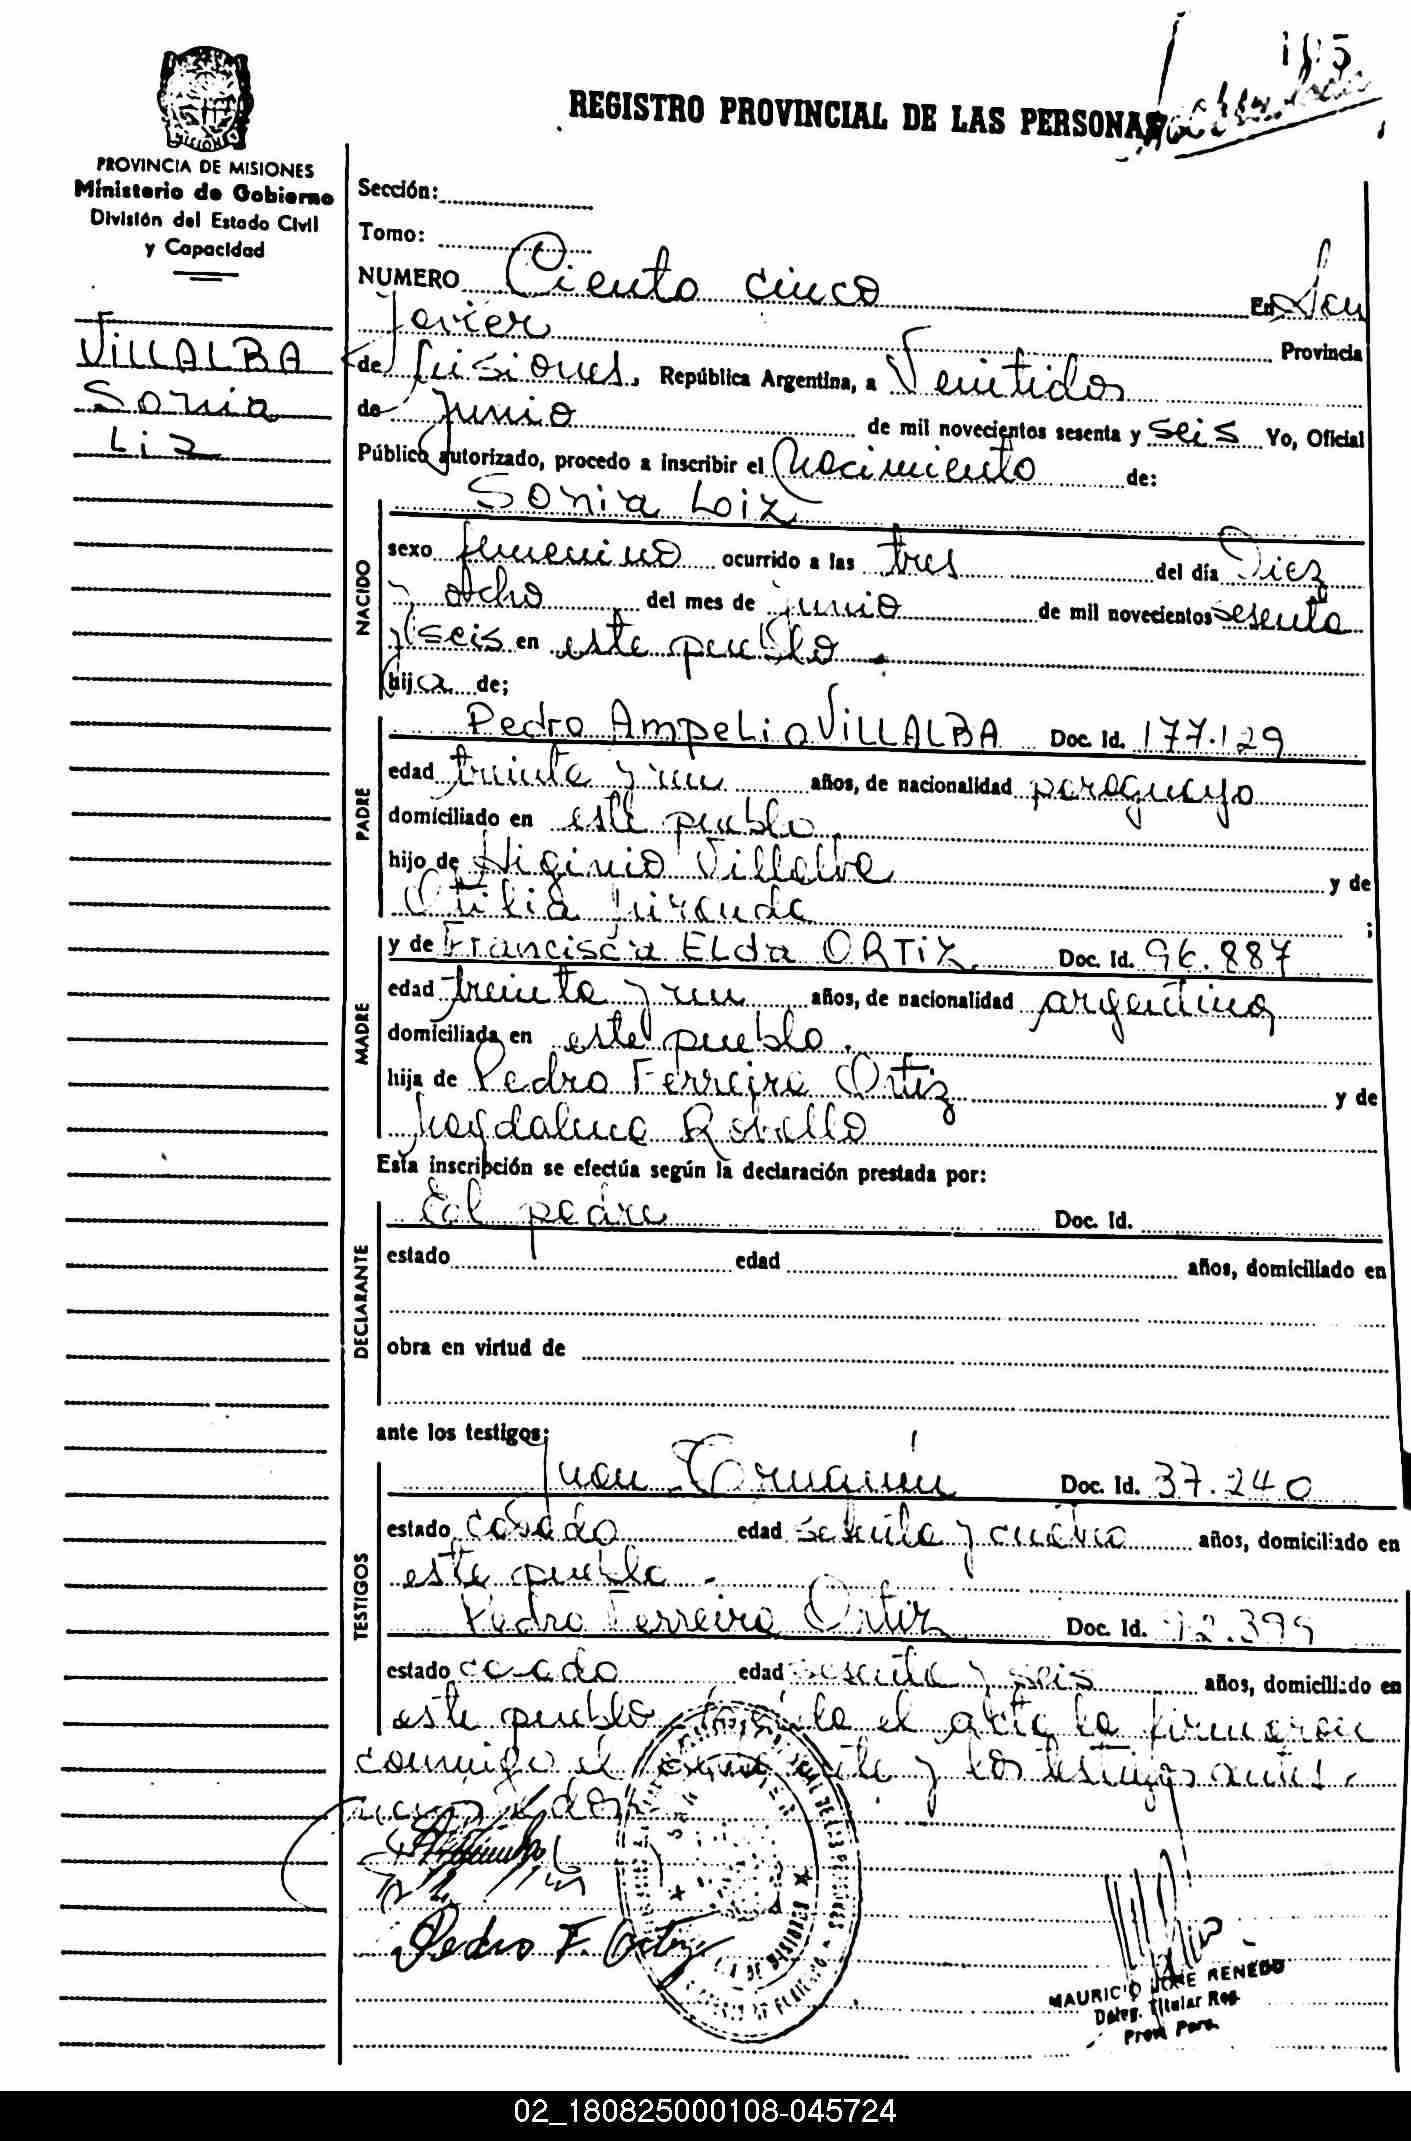 105
REGISTRO PROVINCIAL DE LAS PERSONAS
MISIONES
PROVINCIA DE MISIONES
Ministerio de Gobierno
División del Estado Civil
y Capacidad
VILLALBA
Sonia
Liz
Sección:
Tomo:
NUMERO Ciento cinco En San
Javier Provincia
de Misiones, República Argentina, a Veintidos
de Junio de mil novecientos sesenta y seis Yo, Oficial
Público autorizado, procedo a inscribir el Nacimiento de:
NACIDO
Sonia Liz
sexo femenino ocurrido a las tres del día Diez
y ocho del mes de junio de mil novecientos sesenta
y seis en este pueblo.
hija de;
PADRE
Pedro Ampelio VILLALBA Doc. Id. 177.129
edad treinta y un años, de nacionalidad paraguayo
domiciliado en este pueblo
hijo de Higinio Villalba y de
Otilia Miranda ;
MADRE
y de Francisca Elda ORTIZ Doc. Id. 96.887
edad treinta y un años, de nacionalidad argentina
domiciliada en este pueblo.
hija de Pedro Ferreira Ortiz y de
Magdalena Robello
Esta inscripción se efectúa según la declaración prestada por:
DECLARANTE
El padre Doc. Id.
estado edad años, domiciliado en
obra en virtud de
ante los testigos:
TESTIGOS
Juan Doc. Id. 37.240
estado casado edad sesenta y cuatro años, domiciliado en
este pueblo.
Pedro Ferreira Ortiz Doc. Id. 92.399
estado casado edad sesenta y seis años, domiciliado en
este pueblo el acta la firmaron
conmigo el y los testigos antes
Pedro F. Ortiz
MAURICIO JOSE RENEDO
Deleg. Titular Reg.
Prov. Pers.
02_180825000108-045724